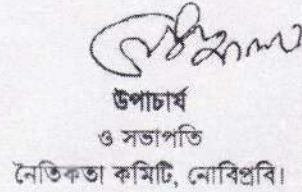 উপাচার্য
ও সভাপতি
নৈতিকতা কমিটি, নোবিপ্রবি।